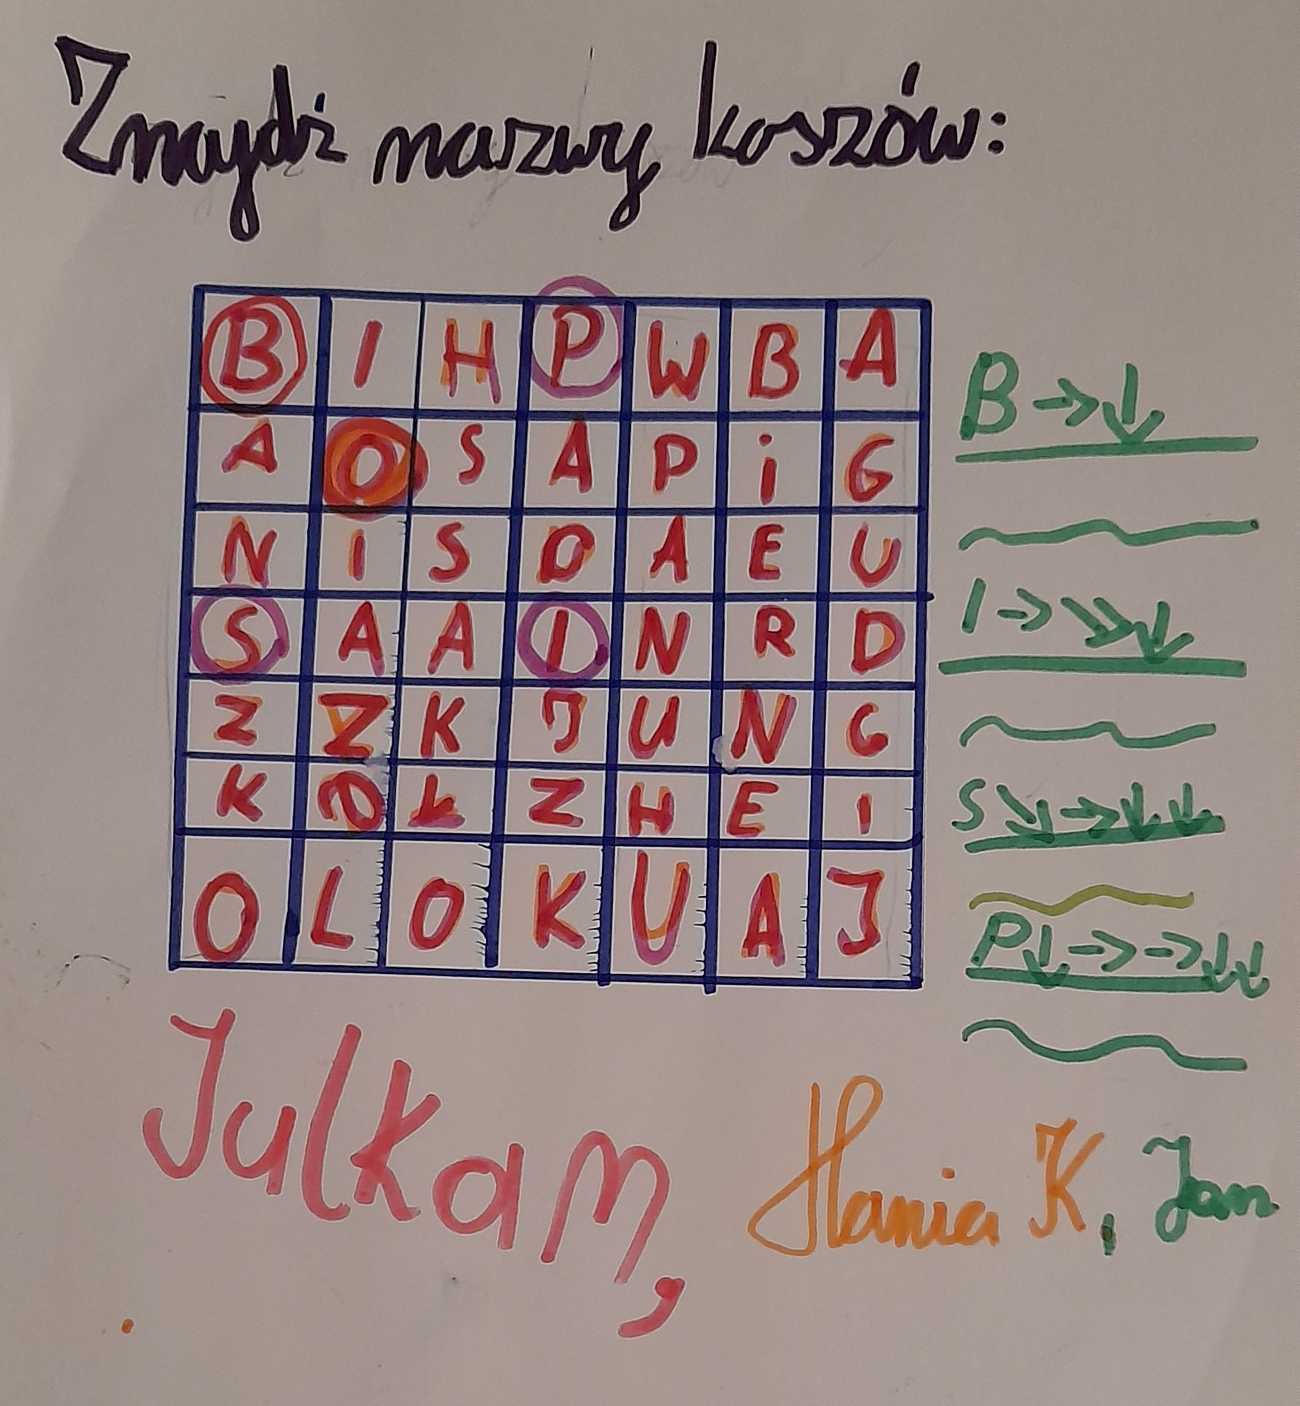 Znajdź nazwy koszów:
B I H P W B A
A O S A P i G
N I S D A E U
S A A I N R D
Z Z K J U N G
K O Ł Z H E I
O L O K U A J
B → ↓
I → → ↓
S ↘ → ↓ ↓
P ↓ → → ↓ ↓
Julka M, Hania K, Jan